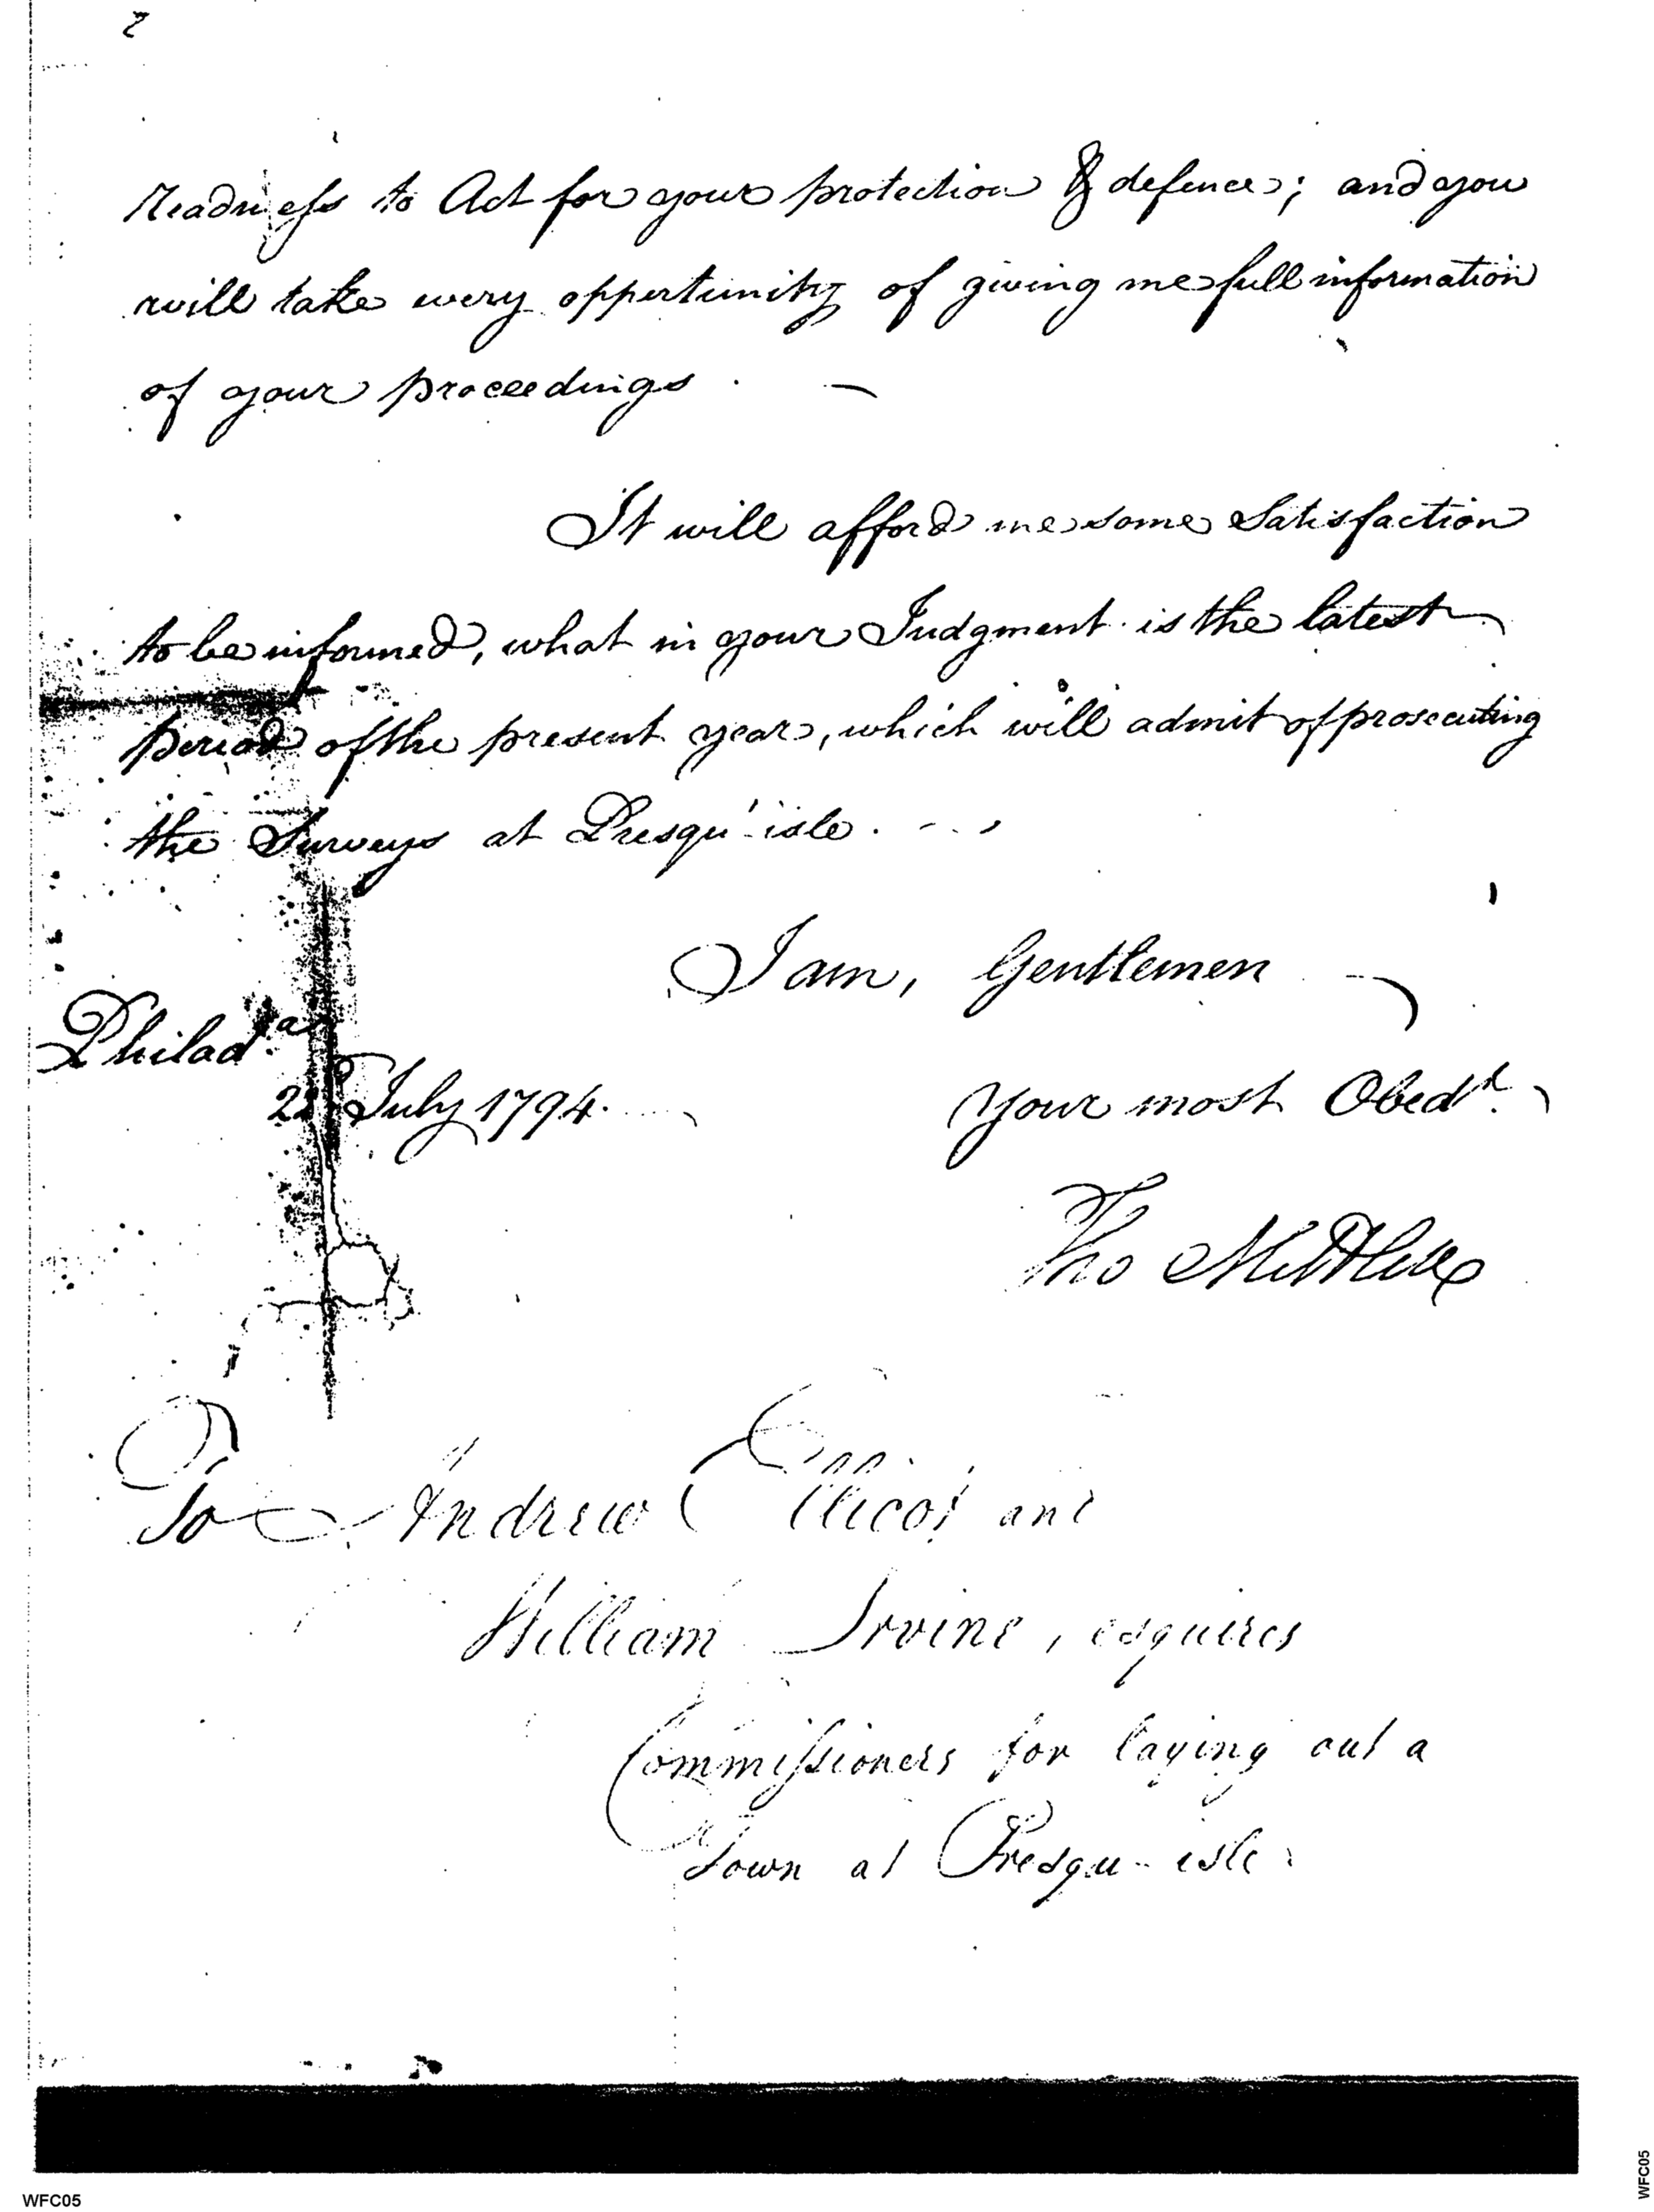 2
readiness to Act for your protection & defence; and you
will take every oppertunity of giving me full information
of your proceedings. —
It will afford me some Satisfaction
to be informed, what in your Judgment is the latest
period of the present year, which will admit of prosecuting
the Surveys at Presqu'-isle.
I am, Gentlemen
Philad.a
July 1794.
Your most Obedt.
Tho Mifflin
To Andrew Ellicot and
William Irvine, esquires
Commissioners for laying out a
Town at Presqu-isle.
WFC05
WFC05